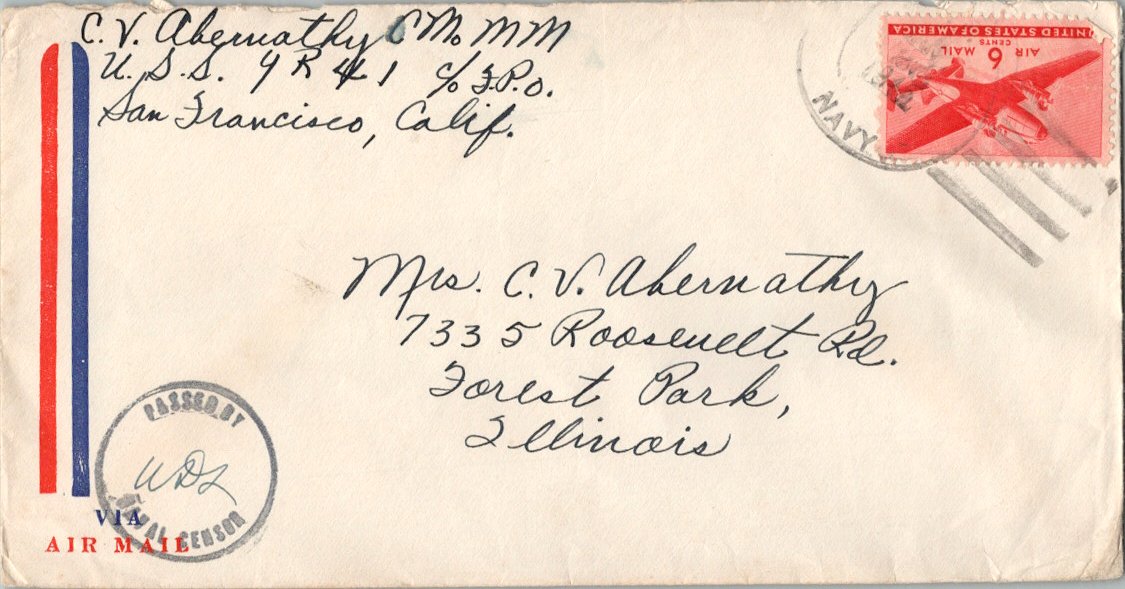 C. V. Abernathy CMoMM
U.S.S. YR 41 c/o F.P.O.
San Francisco, Calif.
UNITED STATES OF AMERICA
CENTS
6
AIR MAIL
NAVY
Mrs. C. V. Abernathy
7335 Roosevelt Rd.
Forest Park,
Illinois
PASSED BY
WDL
NAVAL CENSOR
VIA
AIR MAIL